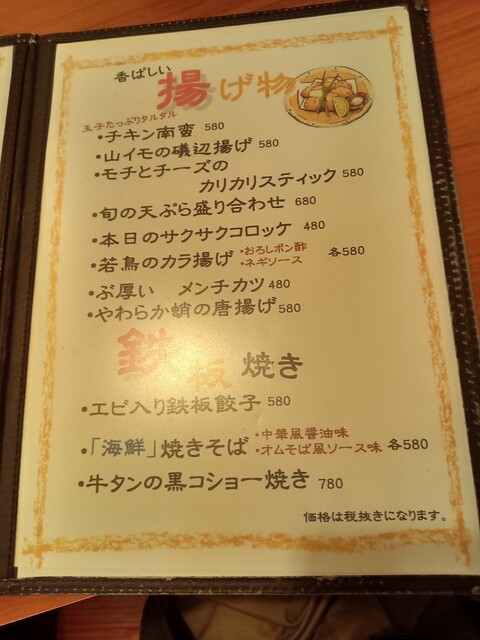 香ばしい 揚げ物
玉子たっぷりタルタル
・チキン南蛮 580
・山イモの磯辺揚げ 580
・モチとチーズの
カリカリスティック 580
・旬の天ぷら盛り合わせ 680
・本日のサクサクコロッケ 480
・若鳥のカラ揚げ ・おろしポン酢 各580
・ネギソース
・ぶ厚い メンチカツ 480
・やわらか蛸の唐揚げ 580
鉄板焼き
・エビ入り鉄板餃子 580
・「海鮮」焼きそば ・中華風醤油味 各580
・オムそば風ソース味
・牛タンの黒コショー焼き 780
価格は税抜きになります。